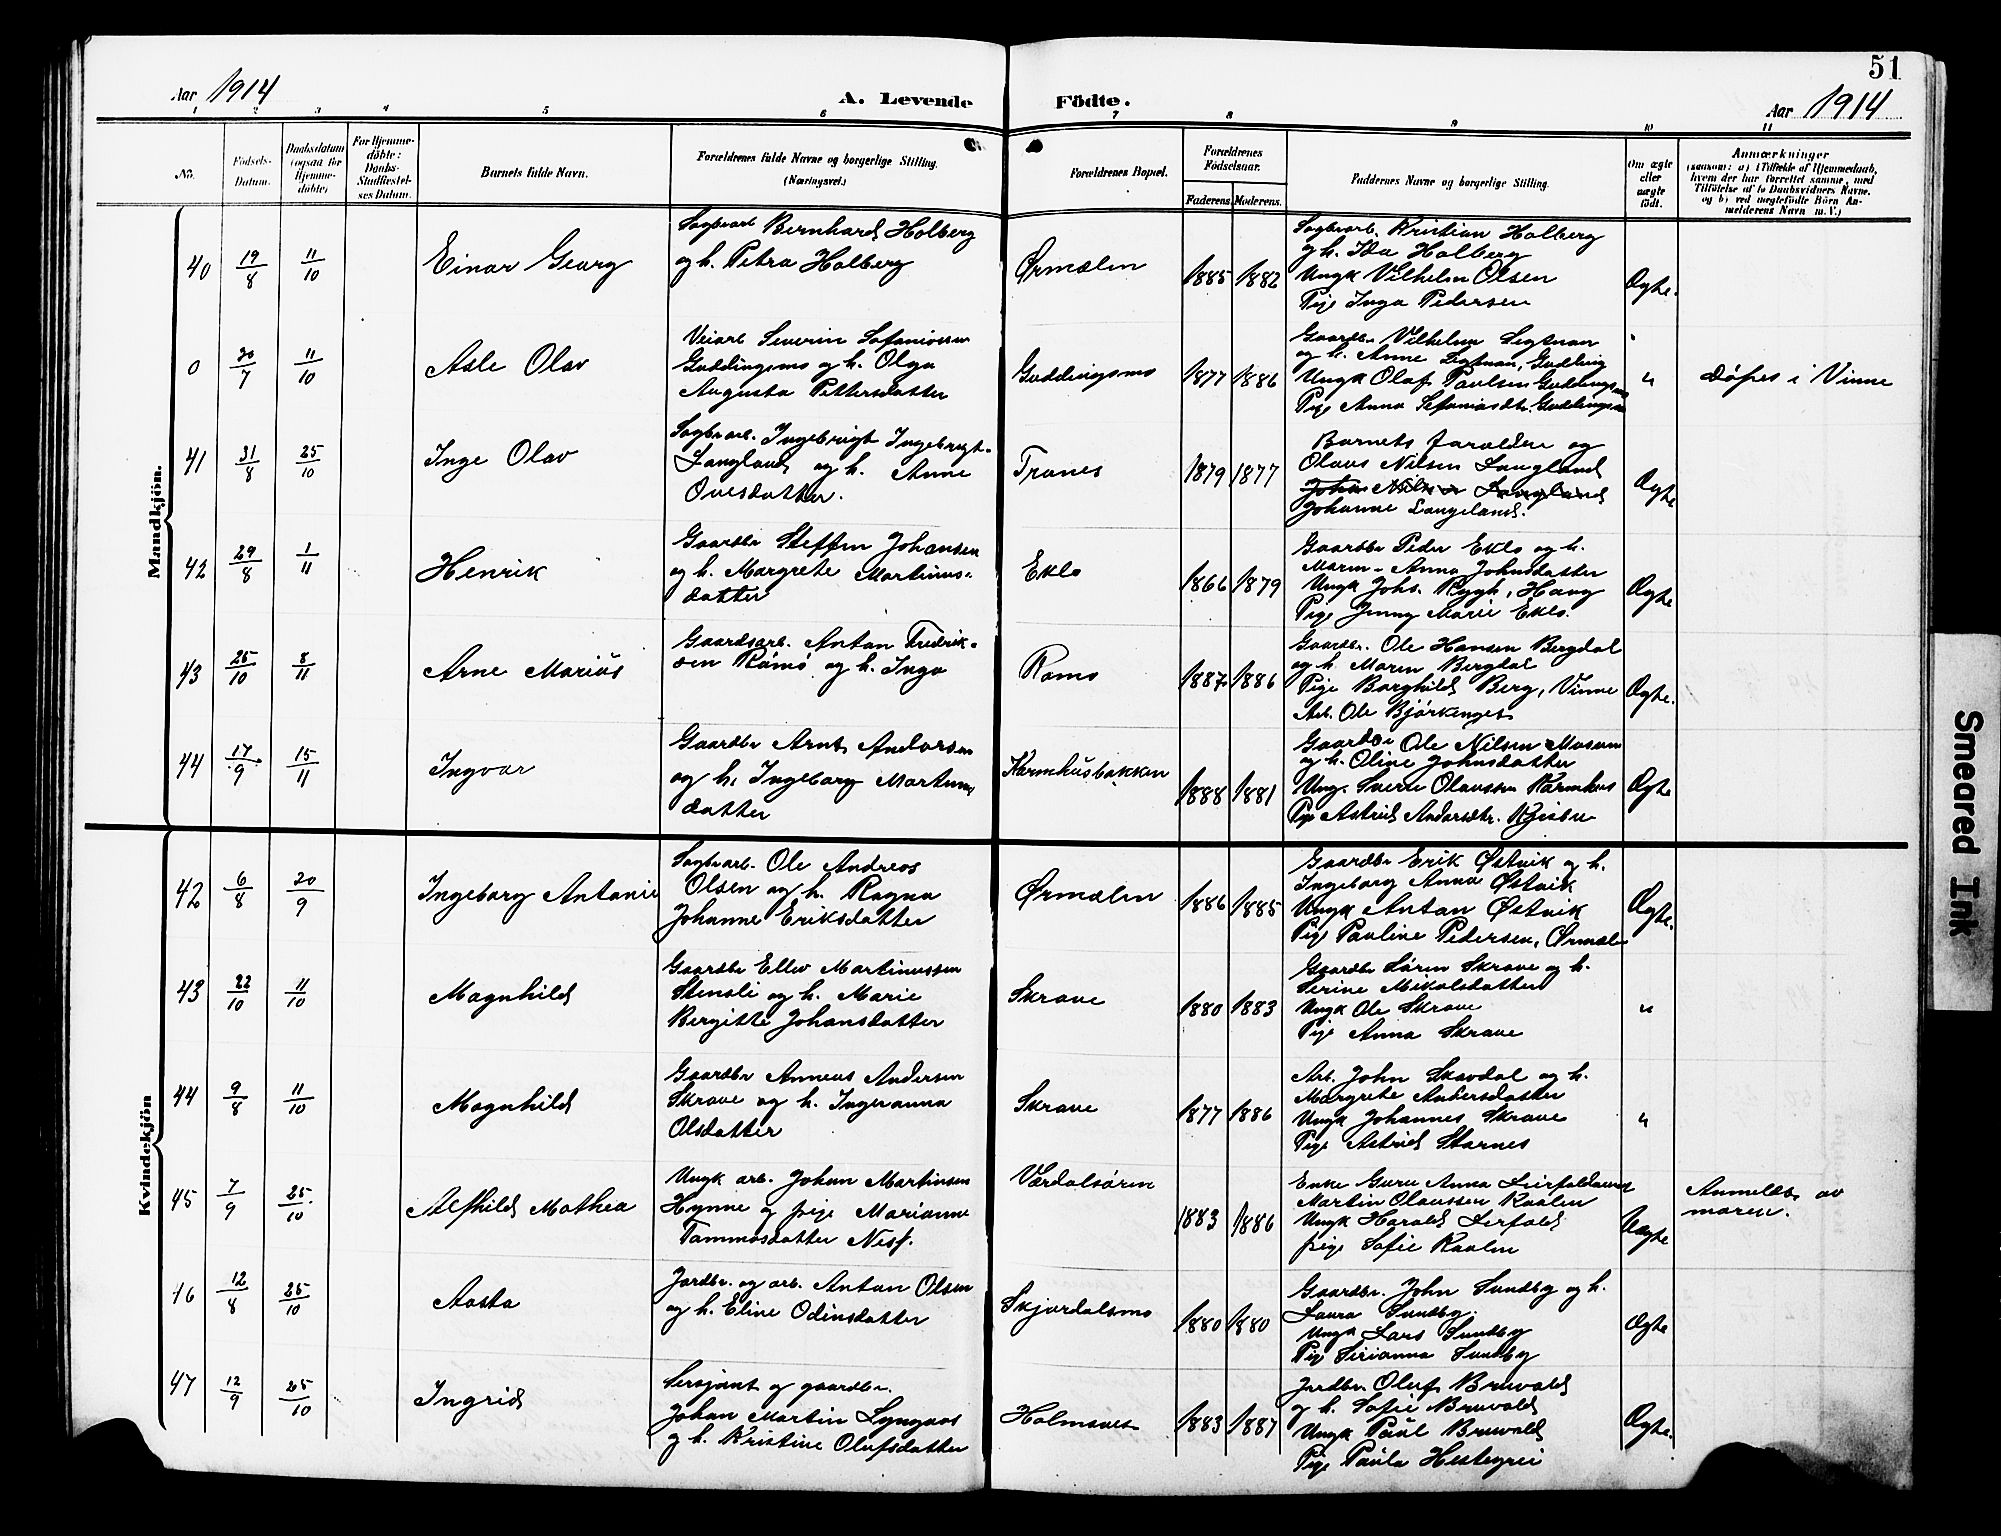 51
Aar 1914
A. Levende Födte.
Aar 1914
1 2 3 4 5 6 7 8 9 10 11
No.
Födsels-
Datum.
Daabsdatum
(ogsaa för
Hjemme-
döbte)
For Hjemme-
döbte:
Daabs-
Stadfæstel-
ses Datum.
Barnets fulde Navn.
Forældrenes fulde Navne og borgerlige Stilling.
(Næringsvei.)
Forældrenes Bopæl.
Forældrenes
Födselsaar.
Faderens. Moderens.
Faddernes Navne og borgerlige Stilling.
Om ægte
eller
uægte
födt.
Anmærkninger
(saasom: a) i Tilfælde af Hjemmedaab,
hvem der har forrettet samme, med
Tilföielse af to Daabsvidners Navne.
og b) ved uægtefödte Börn An-
melderens Navn m. V.)
Mandkjön.
40
19/8
11/10
Einar Georg
Sagbrarb. Bernhard Holberg
og h. Petra Holberg
Ørmælen
1885 1882
Sagbrarb. Kristian Holberg
og h. Ida Holberg
Ungk Vilhelm Olsen
Pige Inga Pedersen
Ægte.
0
30/7
11/10
Asle Olav
Veiarb Severin Sefaniassen
Guddingsmo og h. Olga
Augusta Pettersdatter
Guddingsmo
1877 1886
Gaardbr Vilhelm Segtnan
og h. Anne Segtnan, Gudding
Ungk Olaf Paulsen Guddingsmo
Pige Anna Sefaniasdtr. Guddingsmo
"
døpes i Vinne
41
31/8
25/10
Inge Olav
Sagbrarb. Ingebrigt Ingebrigt-
Langland og h. Anne
Ovesdatter.
Tranes
1879 1877
Barnets forældre og
Olaus Nilsen Langland
Johan Nilsen Langland
Johanne Langeland.
Ægte
42
29/8
1/11
Henrik
Gaardbr Steffen Johansen
og h. Margrete Martinus-
datter
Eklo
1866 1879
Gaardbr Peder Eklo og h.
Maren-Anna Johnsdatter
Ungk Johs. Rygh, Haug
Pige Jenny Marie Eklo.
Ægte
43
25/10
8/11
Arne Marius
Gaardsarb. Anton Fredrik-
sen Ramo og h. Inga
Ramo
1887 1886
Gaardbr. Ole Hansen Bergdal
og h. Maren Bergdal
Pige Borghild Berg, Vinne
Arb. Ole Bjørkenget
Ægte.
44
17/9
15/11
Ingvar
Gaardbr Arnt Andersen
og h. Ingeborg Martinus
datter
Karmhusbakken
1888 1881
Gaardbr Ole Nilsen Mosum
og h. Oline Johnsdatter
Ung. Sverre Olaussen Karmhus
Pige Astrid Andersdtr. Kjesbu
Ægte
Kvindekjön
42
6/8
20/9
Ingeborg Antonie
Sagbrarb. Ole Andreas
Olsen og h. Ragna
Johanne Eriksdatter
Ørmælen
1886 1885
Gaardbr Erik Østvik og h.
Ingeborg Anna Østvik
Ungk Anton Østvik
Pige Pauline Pedersen, Ørmæle
Ægte.
43
22/10
11/10
Magnhild
Gaardbr Ellev Martinussen
Stensli og h. Marie
Bergitte Johansdatter
Skrove
1880 1883
Gaardbr Søren Skrove og h.
Serine Mikalsdatter
Ungk Ole Skrove
Pige Anna Skrove
"
44
9/8
11/10
Magnhild
Gaardbr Anneus Andersen
Skrove og h. Ingeranna
Olsdatter
Skrove
1877 1886
Arb. John Skavdal og h.
Margrete Andersdatter
Ungk Johannes Skrove
Pige Astrid Stornes
"
45
7/9
25/10
Alfhild Mathea
Ungk arb. Johan Martinsen
Hynne og pige Marianne
Tommasdatter Nesf.
Værdalsøren
1883 1886
Enke Guru Anna
Martin Olaussen Kvalen
Ungk Harald Leirfald
pige Sofie Kvalen
Uægte
Anmeldt av
moren.
46
12/8
25/10
Aasta
Jordbr. og arb. Anton Olsen
og h. Eline Odinsdatter
Skjørdalsmo
1880 1880
Gaardbr. John Sundby og h.
Laura Sundby.
Ungk Lars Sundby
Pige Serianna Sundby
Ægte
47
12/9
25/10
Ingrid
Sersjant og gaardbr.
Johan Martin Lyngaas
og h. Kristine Olufsdatter
Holmsvet
1883 1887
Jordbr. Oluf Bruvold
og h. Sofie Bruvold
Ungk Paul Bruvold
Pige Paula Hestegrei
Ægte.
Smeared Ink